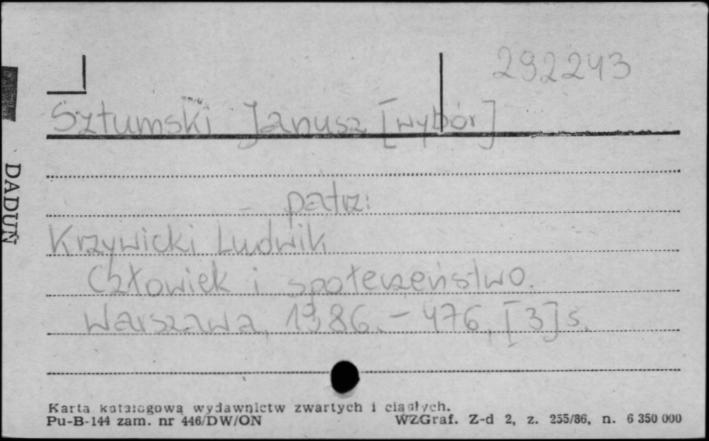 292243
Sztumski Janusz [wybór]
patrz:
Krzywicki Ludwik
Człowiek i społeczeństwo.
Warszawa, 1986. – 476, [3] s.
DADUŃ
Karta katalogowa wydawnictw zwartych i ciągłych.
Pu-B-144 zam. nr 446/DW/ON WZGraf. Z-d 2, z. 255/86, n. 6 350 000